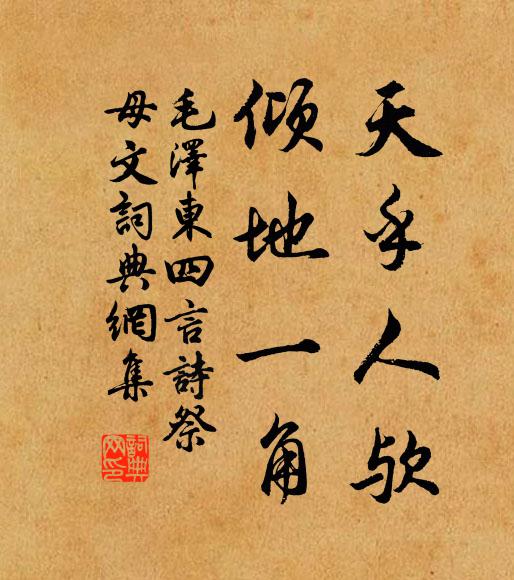 天乎人欤
倾地一角
毛澤東四言詩祭
母文詞典網集
詞典網印